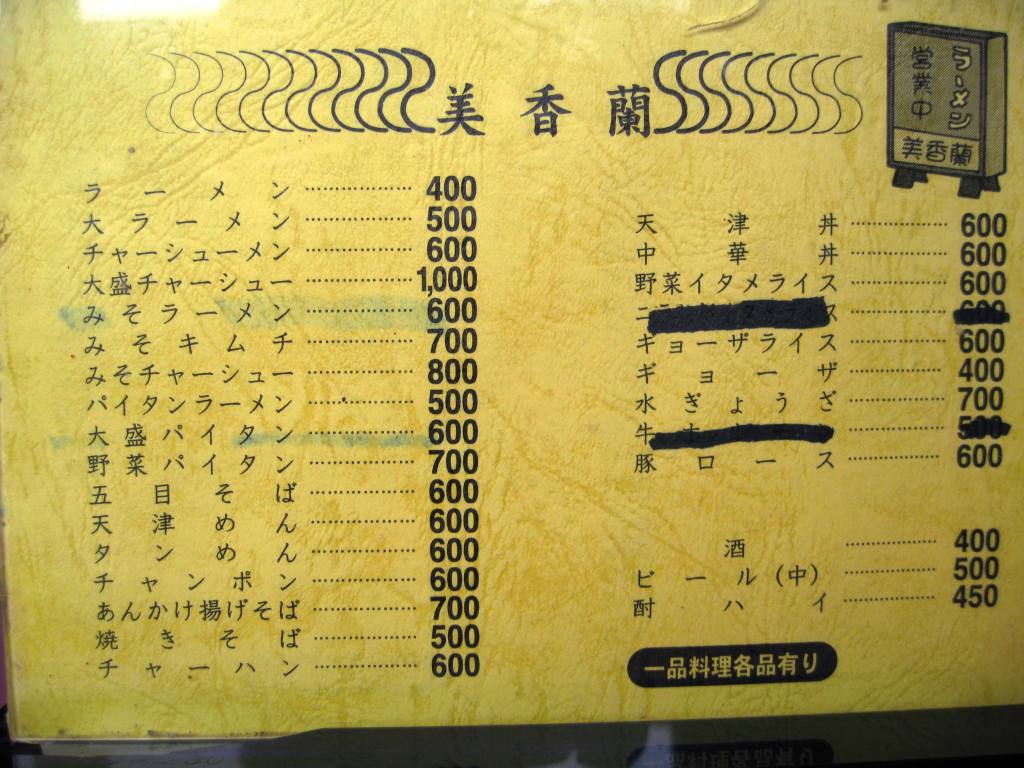 美香蘭
ラーメン
営業中
美香蘭
ラーメン 400
大ラーメン 500
チャーシューメン 600
大盛チャーシュー 1,000
みそラーメン 600
みそキムチ 700
みそチャーシュー 800
パイタンラーメン 500
大盛パイタン 600
野菜パイタン 700
五目そば 600
天津めん 600
タンめん 600
チャンポン 600
あんかけ揚げそば 700
焼きそば 500
チャーハン 600
天津丼 600
中華丼 600
野菜イタメライス 600
ギョーザライス 600
ギョーザ 400
水ぎょうざ 700
牛 500
豚ロース 600
酒 400
ビール(中) 500
酎ハイ 450
一品料理各品有り